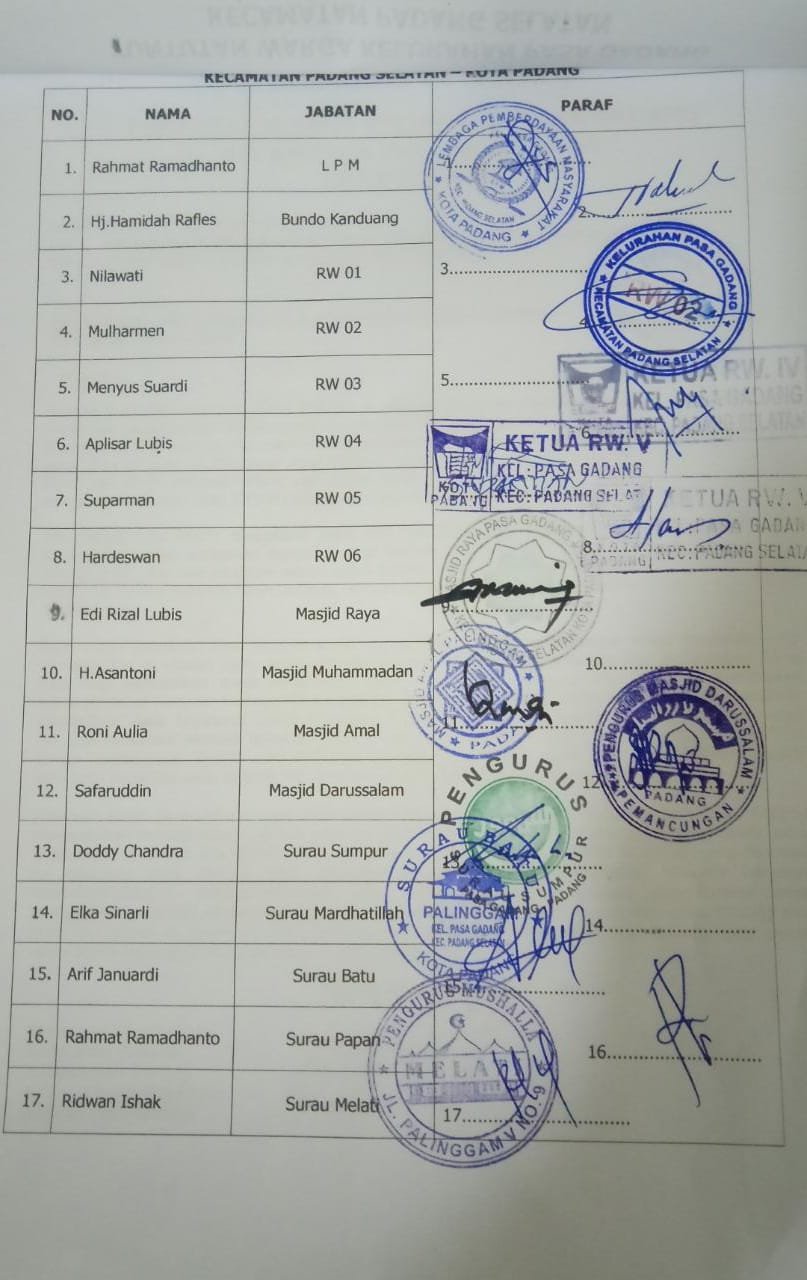 KECAMATAN PADANG SELATAN
TUNTUTAN WARGA KELURAHAN PASA GADANG
KECAMATAN PADANG SELATAN – KOTA PADANG
NO. NAMA JABATAN PARAF
1. Rahmat Ramadhanto L P M 1
2. Hj.Hamidah Rafles Bundo Kanduang 2
3. Nilawati RW 01 3
4. Mulharmen RW 02 4
5. Menyus Suardi RW 03 5
6. Aplisar Lubis RW 04 6
7. Suparman RW 05
8. Hardeswan RW 06 8
9. Edi Rizal Lubis Masjid Raya 9
10. H.Asantoni Masjid Muhammadan 10
11. Roni Aulia Masjid Amal 11
12. Safaruddin Masjid Darussalam 12
13. Doddy Chandra Surau Sumpur 13
14. Elka Sinarli Surau Mardhatillah 14
15. Arif Januardi Surau Batu 15
16. Rahmat Ramadhanto Surau Papan 16
17. Ridwan Ishak Surau Melati 17
LEMBAGA PEMBERDAYAAN MASYARAKAT
KEC. PADANG SELATAN
KOTA PADANG
KELURAHAN PASA GADANG
RW 02
KECAMATAN PADANG SELATAN
KETUA RW. IV
KEL. PASA GADANG
KEC. PADANG SELATAN
KETUA RW. V
KEL: PASA GADANG
KEC: PADANG SELAT
KETUA RW. V
PASA GADAN
KEC: PADANG SELATA
PADANG
MASJID RAYA PASA GADANG
SELATAN KOTA
MASJID AMAL PALINGGAM
PADANG
PENGURUS MASJID DARUSSALAM
PADANG
PEMANCUNGAN
PENGURUS
SUMPUR
PASA GADANG PADANG
SURAU BATU
PALINGGAM
KEL. PASA GADANG
KEC. PADANG SELATAN
KOTA PADANG
PENGURUS MUSHALLA
MELATI
JL. PALINGGAM V NO. 9